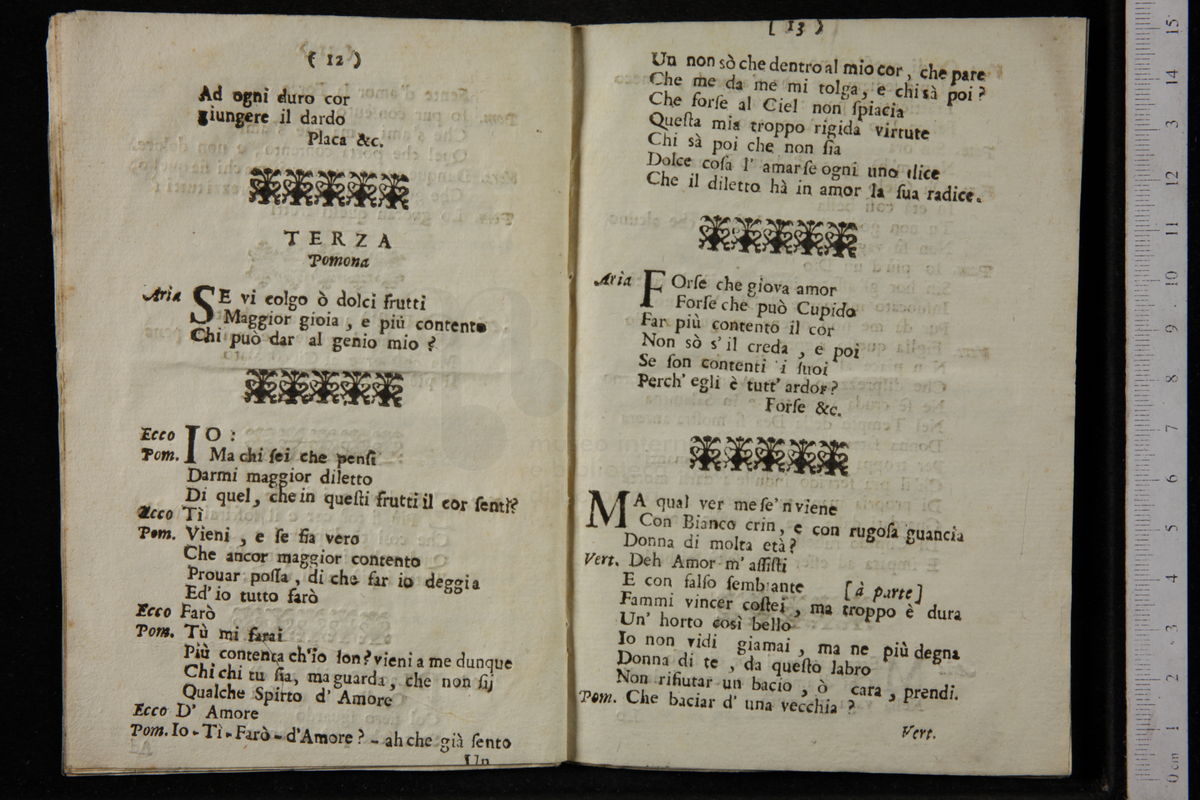 ( 12 )
Ad ogni duro cor
giungere il dardo
Placa &c.
TERZA
Pomona
Aria SE vi colgo ò dolci frutti
Maggior gioia , e più contento
Chi può dar al genio mio ?
Ecco IO :
Pom. Ma chi sei che pensi
Darmi maggior diletto
Di quel, che in questi frutti il cor senti?
Ecco Tì
Pom. Vieni , e se sia vero
Che ancor maggior contento
Prouar possa , di che far io deggia
Ed' io tutto farò
Ecco Farò
Pom. Tù mi farai
Più contenta ch'io son? vieni a me dunque
Chi chi tu sia, ma guarda , che non sij
Qualche Spirto d' Amore
Ecco D' Amore
Pom. Io - Tì - Farò - d'Amore ? - ah che già sento
Un
[ 13 )
Un non sò che dentro al mio cor , che pare
Che me da me mi tolga, e chi sà poi ?
Che forse al Ciel non spiacia
Questa mia troppo rigida virtute
Chi sà poi che non sia
Dolce cosa l' amarse ogni uno dice
Che il diletto hà in amor la sua radice.
Aria FOrse che giova amor
Forse che può Cupido
Far più contento il cor
Non sò s' il creda , e poi
Se son contenti i suoi
Perch' egli è tutt' ardor?
Forse &c.
MA qual ver me se' n viene
Con Bianco crin, e con rugosa guancia
Donna di molta età ?
Vert. Deh Amor m' assisti
E con falso sembiante [ à parte ]
Fammi vincer costei , ma troppo è dura
Un' horto così bello
Io non vidi giamai , ma ne più degna
Donna di te , da questo labro
Non rifiutar un bacio , ò cara , prendi.
Pom. Che baciar d' una vecchia ?
Vert.